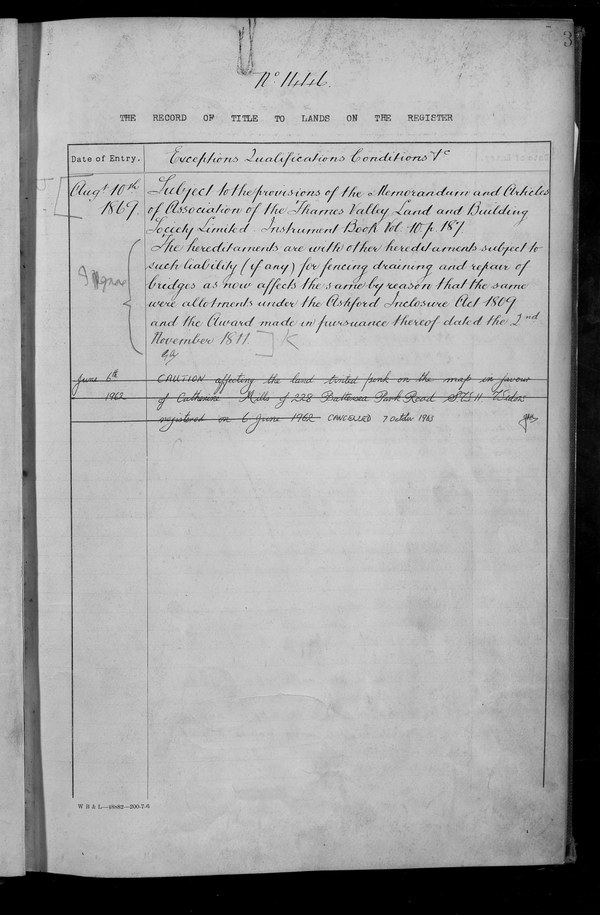 3
No 1446
THE RECORD OF TITLE TO LANDS ON THE REGISTER
Date of Entry.
Exceptions Qualifications Conditions &c
Augt 10th
1869
Subject to the provisions of the Memorandum and Articles
of Association of the Thames Valley Land and Building
Society Limited. Instrument Book Vol. 10. p. 187
The hereditaments are with other hereditaments subject to
such liability (if any) for fencing draining and repair of
bridges as now affects the same by reason that the same
were allotments under the Ashford Inclosure Act 1809
and the Award made in pursuance thereof dated the 2nd
November 1811. K
June 6th
1962
CAUTION affecting the land tinted pink on the map in favour
of Catherine Mills of 228 Battersea Park Road S.W.11 Widow
registered on 6 June 1962 CANCELLED 7 October 1963
W B & L—49982—200-7-6